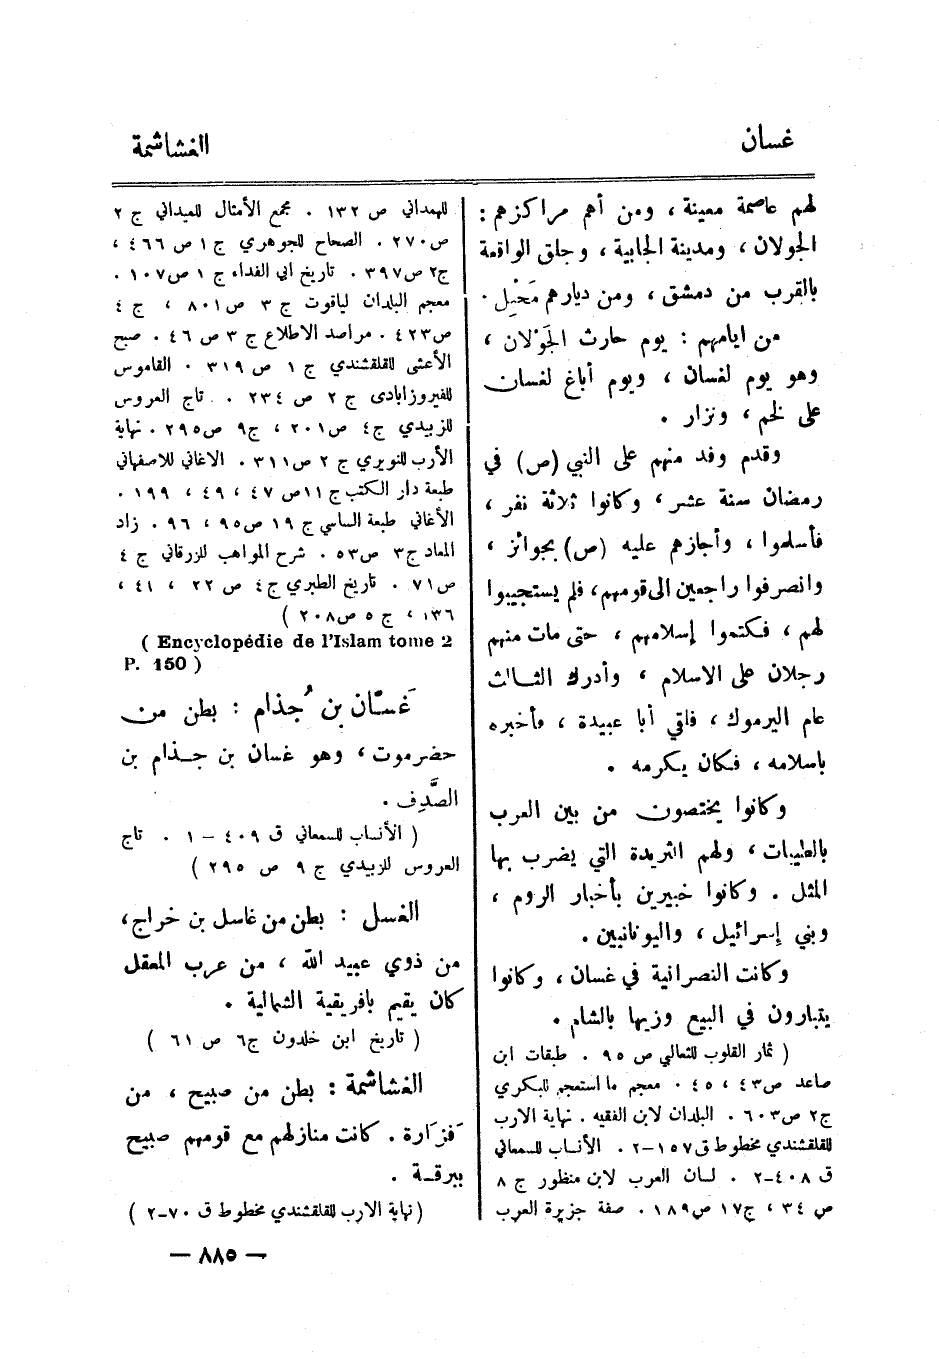 غسان
الغشاشمة
لهم عاصمة معينة ، ومن أهم مراكزهم :
الجولان ، ومدينة الجابية ، وجلق الواقعة
بالقرب من دمشق ، ومن ديارهم مَحْبِل .
من ايامهم : يوم حارث الجَوْلان ،
وهو يوم لغسان ، ويوم أباغ لغسان
على لخم ، ونزار .
وقدم وفد منهم على النبي (ص) في
رمضان سنة عشر ، وكانوا ثلاثة نفر ،
فأسلموا ، وأجازهم عليه (ص) بجوائز ،
وانصرفوا راجعين الى قومهم ، فلم يستجيبوا
لهم ، فكتموا إسلامهم ، حتى مات منهم
رجلان على الاسلام ، وأدرك الثالث
عام اليرموك ، فلقي أبا عبيدة ، فأخبره
باسلامه ، فكان يكرمه .
وكانوا يختصون من بين العرب
بالطيبات ، ولهم الثريدة التي يضرب بها
المثل . وكانوا خبيرين بأخبار الروم ،
وبني إسرائيل ، واليونانيين .
وكانت النصرانية في غسان ، وكانوا
يتبارون في البيع وزيها بالشام .
( ثمار القلوب للثعالبي ص ٩٥ . طبقات ابن
صاعد ص ٤٣ ، ٤٥ . معجم ما استعجم للبكري
ج٢ ص ٦٠٣ . البلدان لابن الفقيه . نهاية الارب
للقلقشندي مخطوط ق ١٥٧-٢ . الأنساب للسمعاني
ق ٤٠٨-٢ . لسان العرب لابن منظور ج ٨
ص ٣٤ ، ج١٧ ص ١٨٩ . صفة جزيرة العرب
للهمداني ص ١٣٢ . مجمع الأمثال للميداني ج ٢
ص ٢٧٠ . الصحاح للجوهري ج ١ ص ٤٦٦ ،
ج٢ ص ٣٩٧ . تاريخ ابي الفداء ج ١ ص ١٠٧ .
معجم البلدان لياقوت ج ٣ ص ٨٠١ ، ج ٤
ص ٤٢٣ . مراصد الاطلاع ج ٣ ص ٤٦ . صبح
الأعشى للقلقشندي ج ١ ص ٣١٩ . القاموس
للفيروزابادى ج ٢ ص ٢٣٤ . تاج العروس
للزبيدي ج٤ ص ٢٠١ ، ج٩ ص ٢٩٥ . نهاية
الأرب للنويري ج ٢ ص ٣١١ . الاغاني للاصفهاني
طبعة دار الكتب ج ١١ ص ٤٧ ، ٤٩ ، ١٩٩ .
الأغاني طبعة الساسي ج ١٩ ص ٩٥ ، ٩٦ . زاد
المعاد ج٣ ص ٥٣ . شرح المواهب للزرقاني ج ٤
ص ٧١ . تاريخ الطبري ج٤ ص ٢٢ ، ٤١ ،
١٣٦ ، ج ٥ ص ٢٠٨ )
( Encyclopédie de l'Islam tome 2
P. 150 )
غَسّان بن جُذام : بطن من
حضرموت ، وهو غسان بن جذام بن
الصَّدِف .
( الأنساب للسمعاني ق ٤٠٩ – ١ . تاج
العروس للزبيدي ج ٩ ص ٢٩٥ )
الغسل : بطن من غاسل بن خراج ،
من ذوي عبيد الله ، من عرب المعقل
كان يقيم بافريقية الشمالية .
( تاريخ ابن خلدون ج٦ ص ٦١ )
الغشاشمة : بطن من صبيح ، من
فَزَارة . كانت منازلهم مع قومهم صبيح
ببرقة .
( نهاية الارب للقلقشندي مخطوط ق ٧٠-٢ )
— ٨٨٥ —